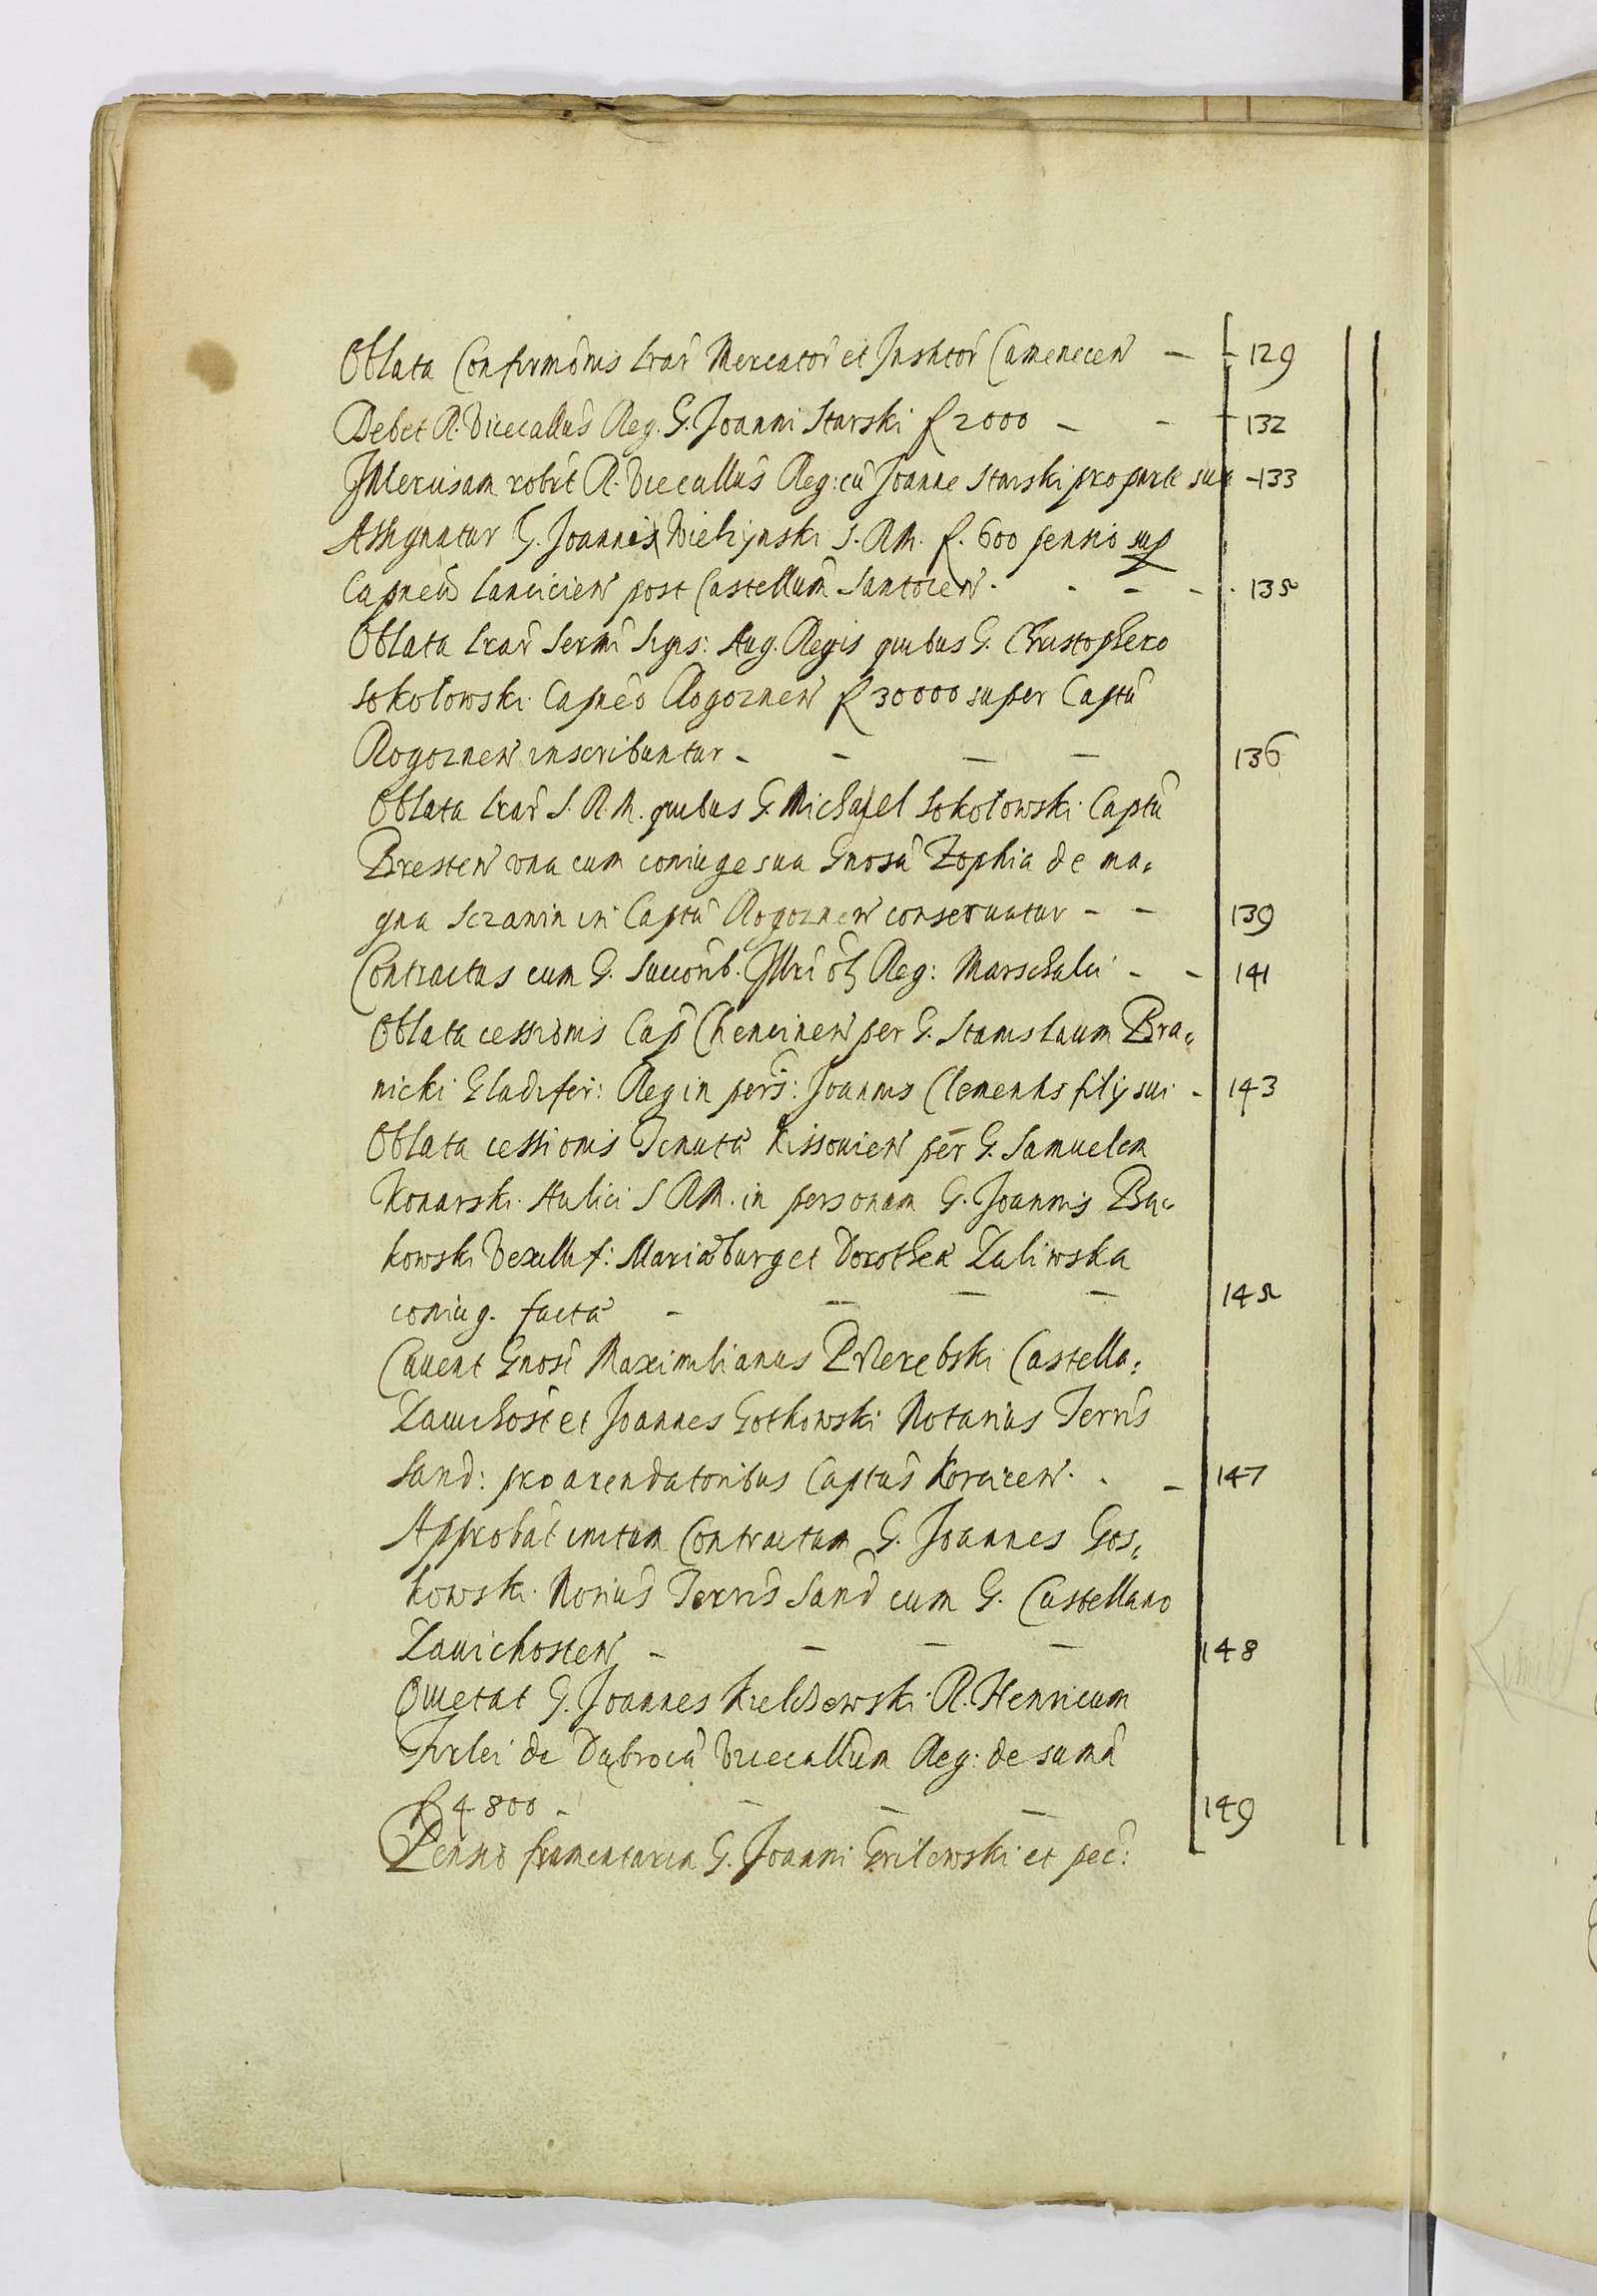 Oblata Confirmõnis Lrar̃ Mercator̃ et Instĩtor̃ Camenecen̄ — 129
Debet R. Vicecallũs Reg. G. Joanni Starski f 2000 — — 132
Intercisam robrĩt R. Vicecallũs Reg: cũ Joanne Starski pro parte sua — 133
Assignatur G. Joannis Wielżynski S. R. M. f. 600 pensio sup
Capneũ Lancicien̄ post Castellum̃ Santocen̄ . - — - . 135
Oblata Lrar̃ Sermĩ Sigis: Aug. Regis quibus G. Christophero
Sokołowski Capnẽo Rogoznen̄ f 30000 super Captũ
Rogoznen̄ inscribuntur - — — — 136
Oblata Lrar̃ S. R. M. quibus G. Michael Sokołowski Captũ
Bresten̄ vna cum coniuge sua Gnosã Zophia de ma,
gna Sczanin in Captũ Rogoznen̄ conseruatur - — 139
Contractus cum G. Succorib. Illri oł Reg: Marschalci - — 141
Oblata cessionis Cap̃ Chencinen̄ per G. Stanislaum Bra,
nicki Gladifer: Reg in pers̃: Joannis Clementis filij sui - 143
Oblata cessionis Tenutæ Kissouien̄ per G. Samuelem
Konarski Aulici S R M. in personam G. Joannis Ba,
kowski Vexillif: Mariæburg et Dorotheæ Zaliwska
coniug. facta - — — — 145
Cauent Gnosi Maximilianus Przerebski Castella,
Zauichost et Joannes Gotkowski Notarius Terrĩs
Sand: pro arendatoribus Captũs Korcicen̄ . . — 147
Approbat initum Contractum G. Joannes Gos,
kowski Norius̃ Terrĩs Sand̃ cum G. Castellano
Zauichosten̄ - — — — 148
Quietat G. Joannes Kieldzewski R. Henricum
Firlei de Dąbrocã Vicecallũm Reg: de sumã
f 4800 - — — — 149
Pensio frumentaria G. Joanni Grilewski et pec̃: